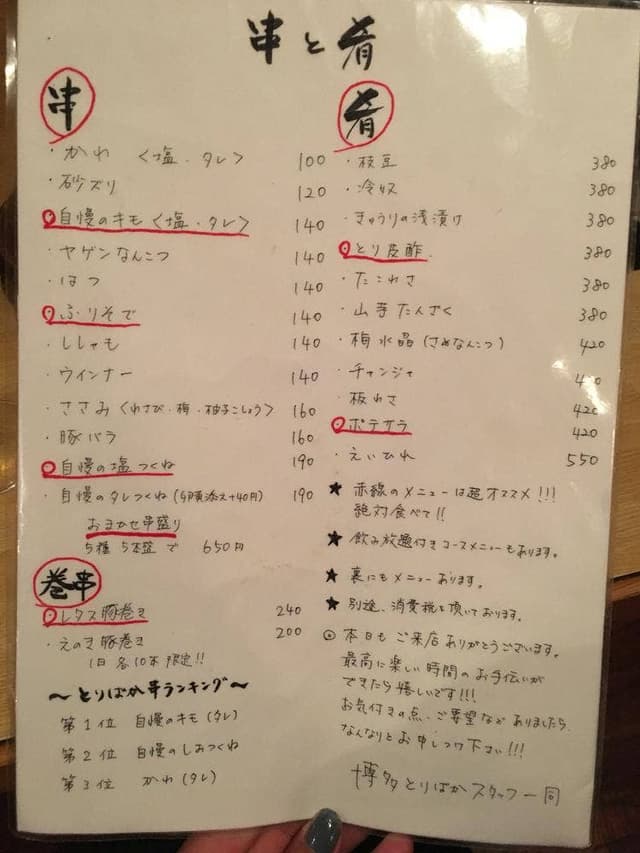 串と肴
串
・かわ〈塩・タレ〉 100
・砂ズリ 120
自慢のキモ〈塩・タレ〉 140
・ヤゲンなんこつ 140
・はつ 140
ふりそで 140
・ししゃも 140
・ウインナー 140
・ささみ〈わさび・梅・柚子こしょう〉 160
・豚バラ 160
自慢の塩つくね 190
・自慢のタレつくね(卵黄添え+40円) 190
おまかせ串盛り
5種5本盛で 650円
巻串
レタス豚巻き 240
・えのき豚巻き 200
1日各10本限定!!
〜とりばか串ランキング〜
第1位 自慢のキモ(タレ)
第2位 自慢のしおつくね
第3位 かわ(タレ)
肴
・枝豆 380
・冷奴 380
・きゅうりの浅漬け 380
とり皮酢 380
・たこわさ 380
・山芋たんざく 380
・梅水晶(さめなんこつ) 420
・チャンジャ
・板わさ 420
ポテサラ 420
・えいひれ 550
★ 赤線のメニューは超オススメ!!!
絶対食べて!!
★ 飲み放題付きコースメニューもあります。
★ 裏にもメニューあります。
★ 別途、消費税を頂いております。
◎ 本日もご来店ありがとうございます。
最高に楽しい時間のお手伝いが
できたら嬉しいです!!!
お気付きの点、ご要望などありましたら、
なんなりとお申しつけ下さい!!!
博多とりばかスタッフ一同